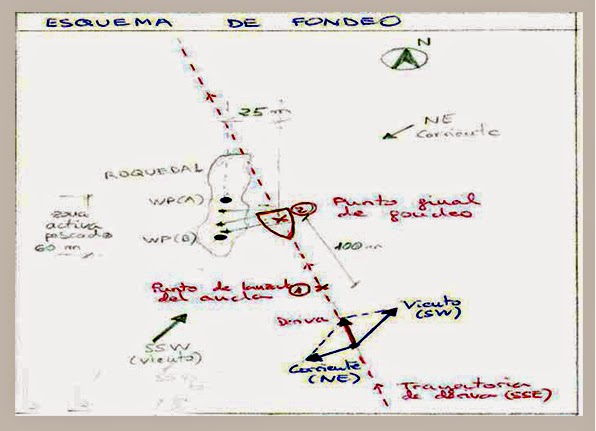 ESQUEMA DE FONDEO
N
25 m
NE
Corriente
ROQUEDAL
WP(A)
WP(B)
zona
activa
pescado
60 m
2
Punto final
de fondeo
100 m
Punto de lanzad
del ancla
1
Deriva
Viento
(SW)
SSW
(viento)
Corriente
(NE)
Trayectoria
de deriva (SSE)